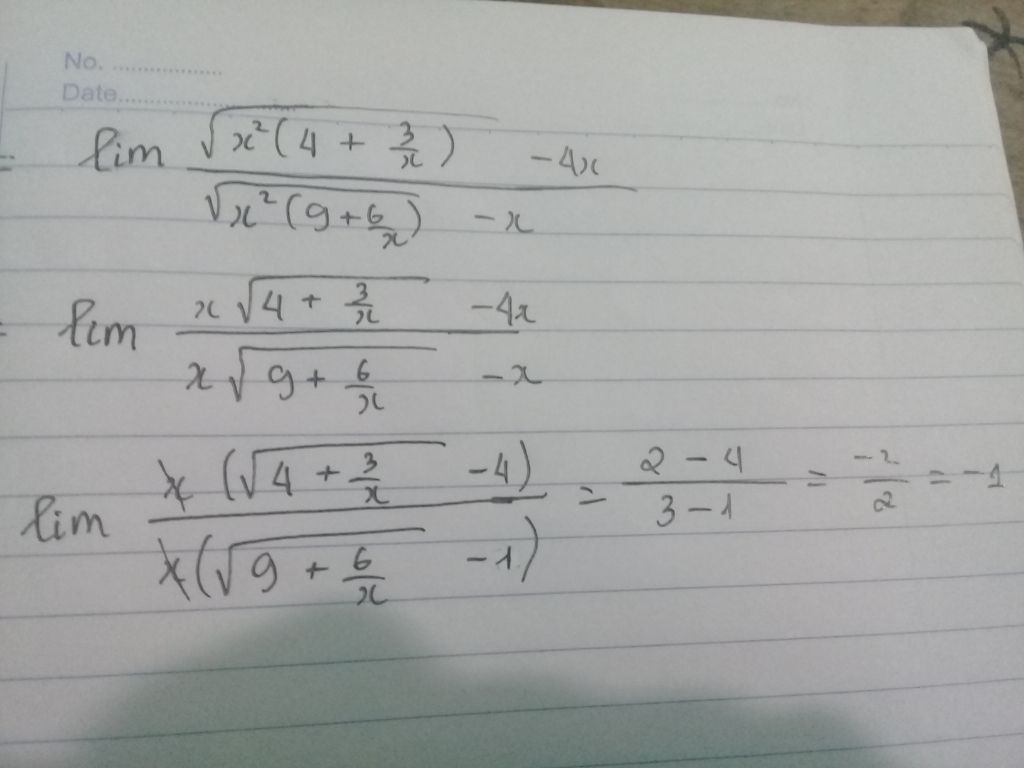 No. ..................
Date......................
= lim (√(x²(4 + 3/x)) - 4x) / (√(x²(9 + 6/x)) - x)
= lim (x√(4 + 3/x) - 4x) / (x√(9 + 6/x) - x)
lim (x(√(4 + 3/x) - 4)) / (x(√(9 + 6/x) - 1)) = (2 - 4)/(3 - 1) = -2/2 = -1